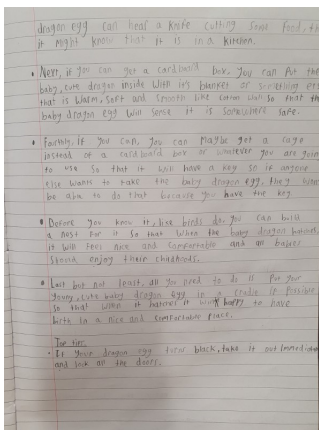 dragon egg can hear a knife cutting some food, th
it might know that it is in a kitchen.
• Next, if you can get a cardboard box, you can put the
baby, cute dragon inside with it's blanket or something els
that is warm, soft and smooth like cotton wool so that the
baby dragon egg will sense it is somewhere safe.
• Forthly, if you can, you can maybe get a cage
instead of a cardboard box or whatever you are goin
to use so that it will have a key so if anyone
else wants to take the baby dragon egg, they won
be able to do that because you have the key.
• Before you know it, like birds do, you can build
a nest for it so that when the baby dragon hatches,
it will feel nice and comfortable and all babies
should enjoy their childhoods.
• Last but not least, all you need to do is put your
young, cute baby dragon egg in a cradle if possible
so that when it hatches it will happy to have
birth in a nice and comfortable place.
Top tips:
• If your dragon egg turns black, take it out immediate
and lock all the doors.